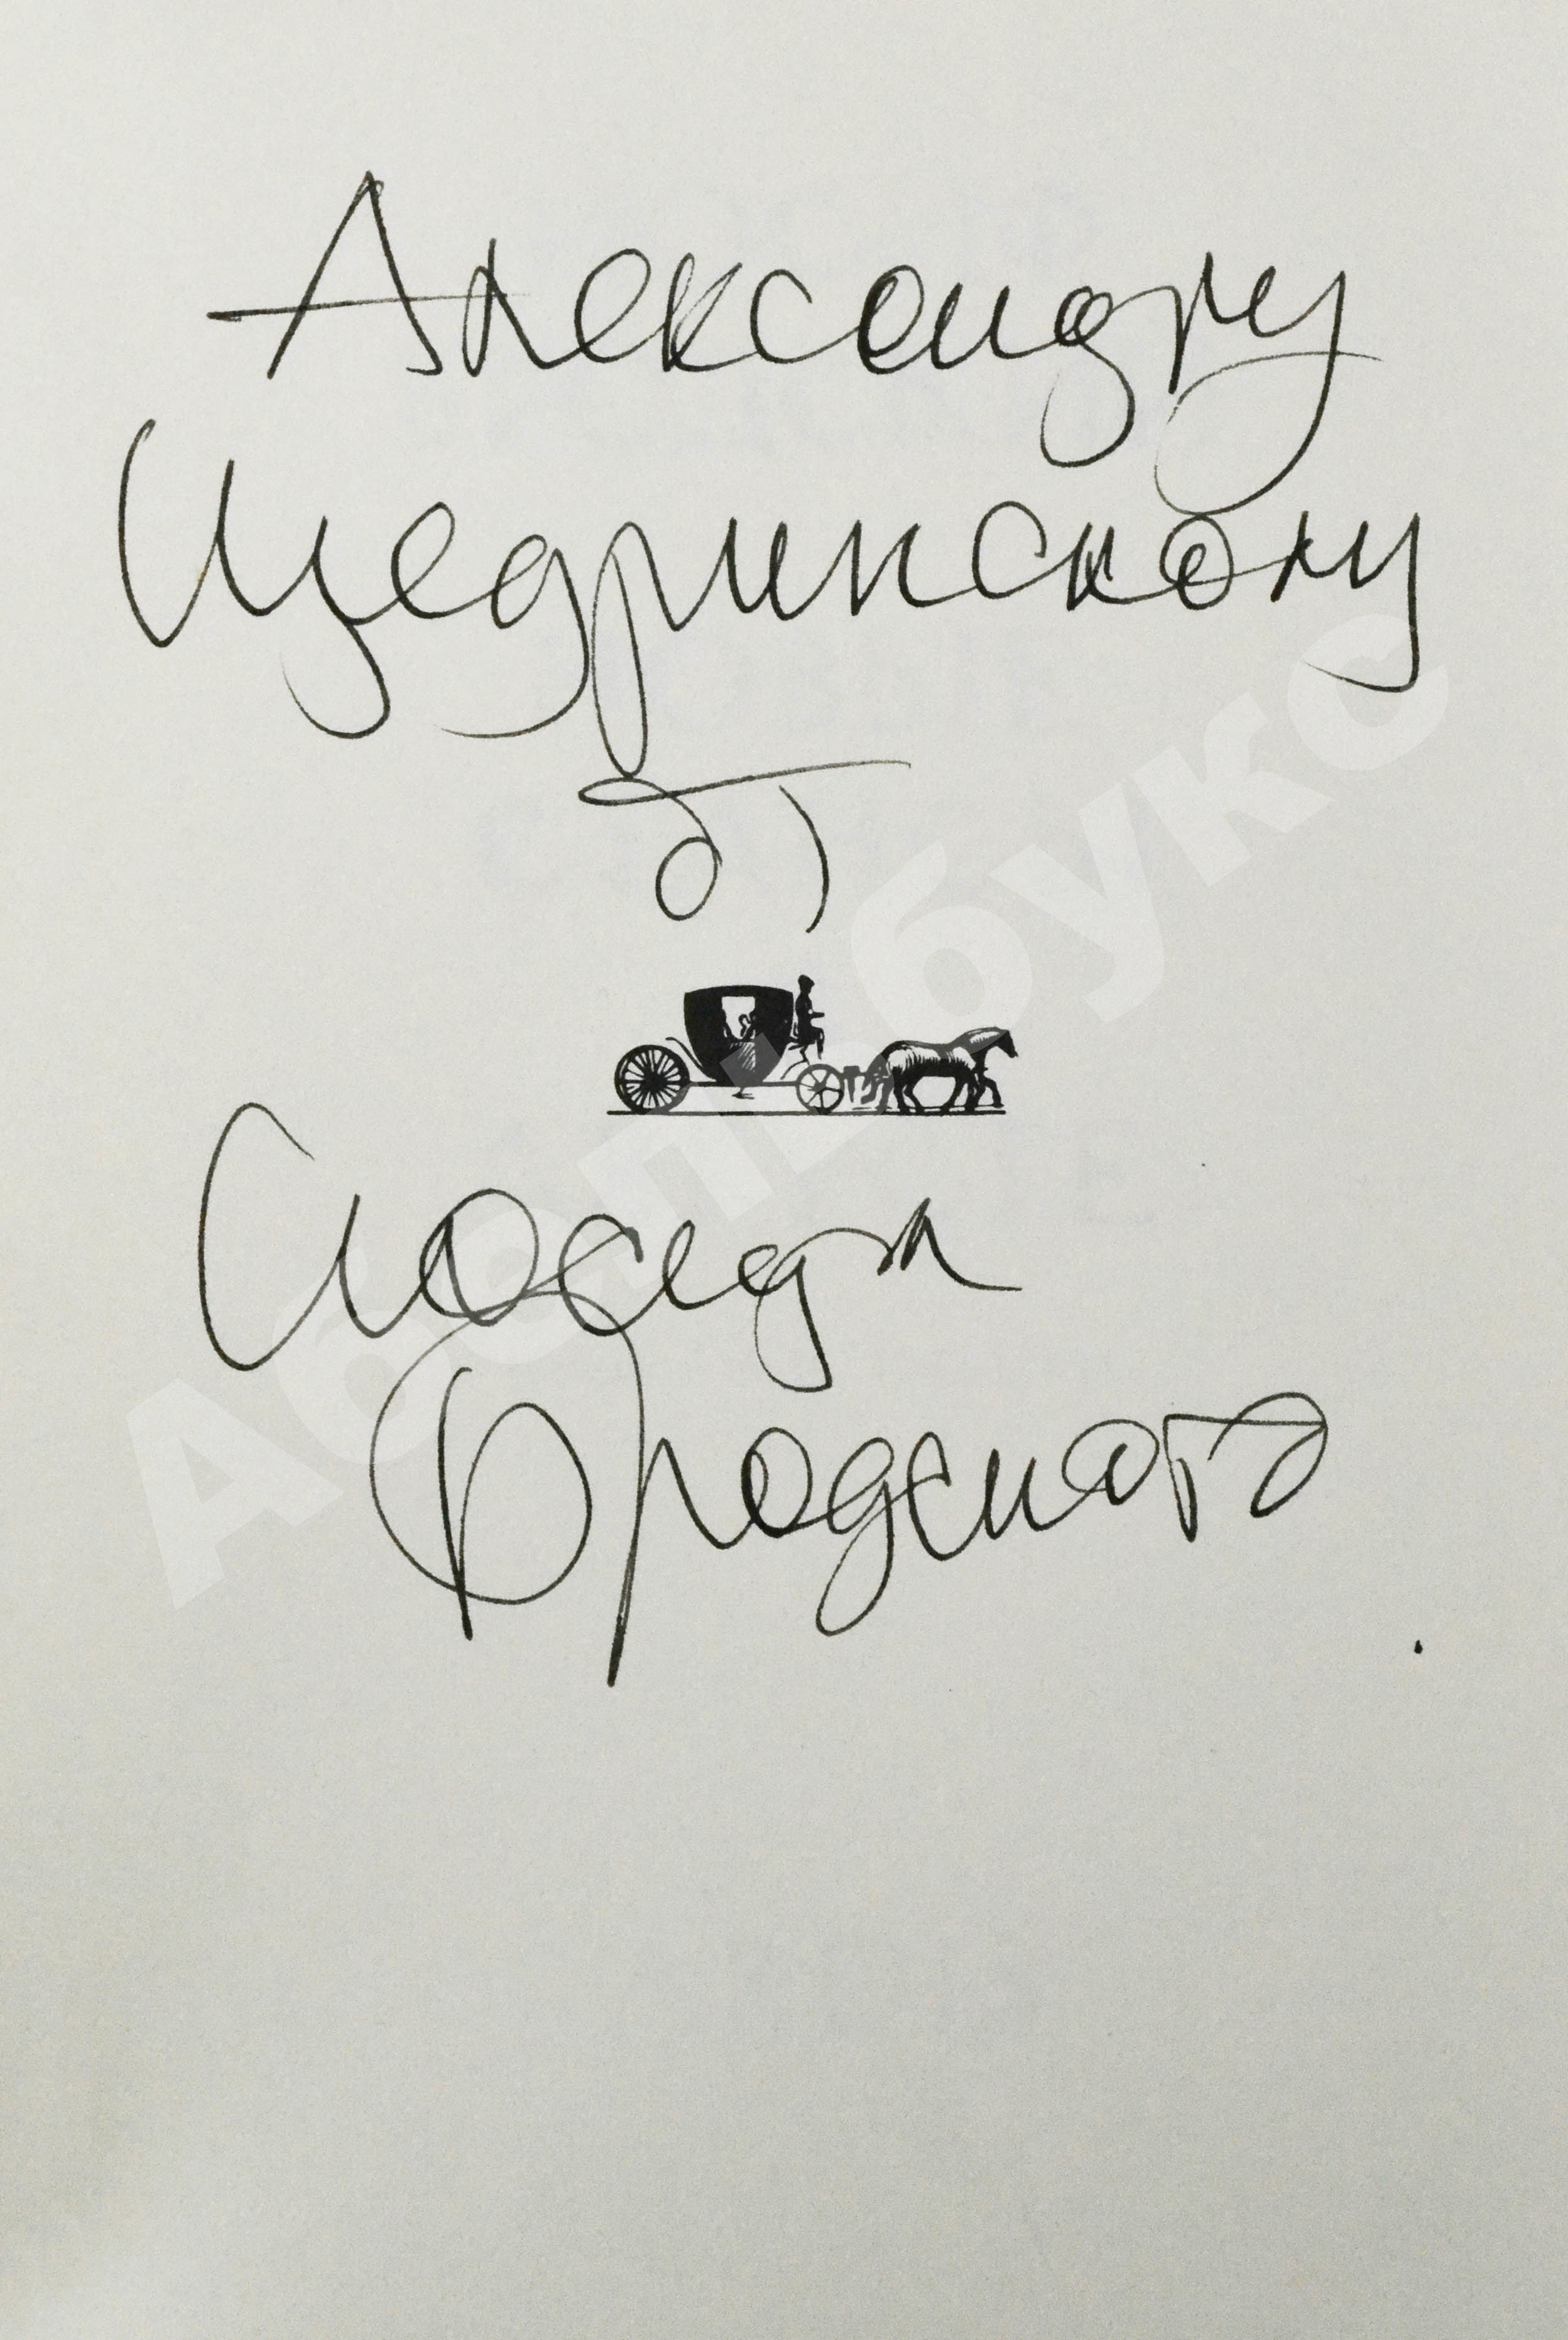 Александру
Щедринскому
от
Иосифа
Бродского
Абельбукс